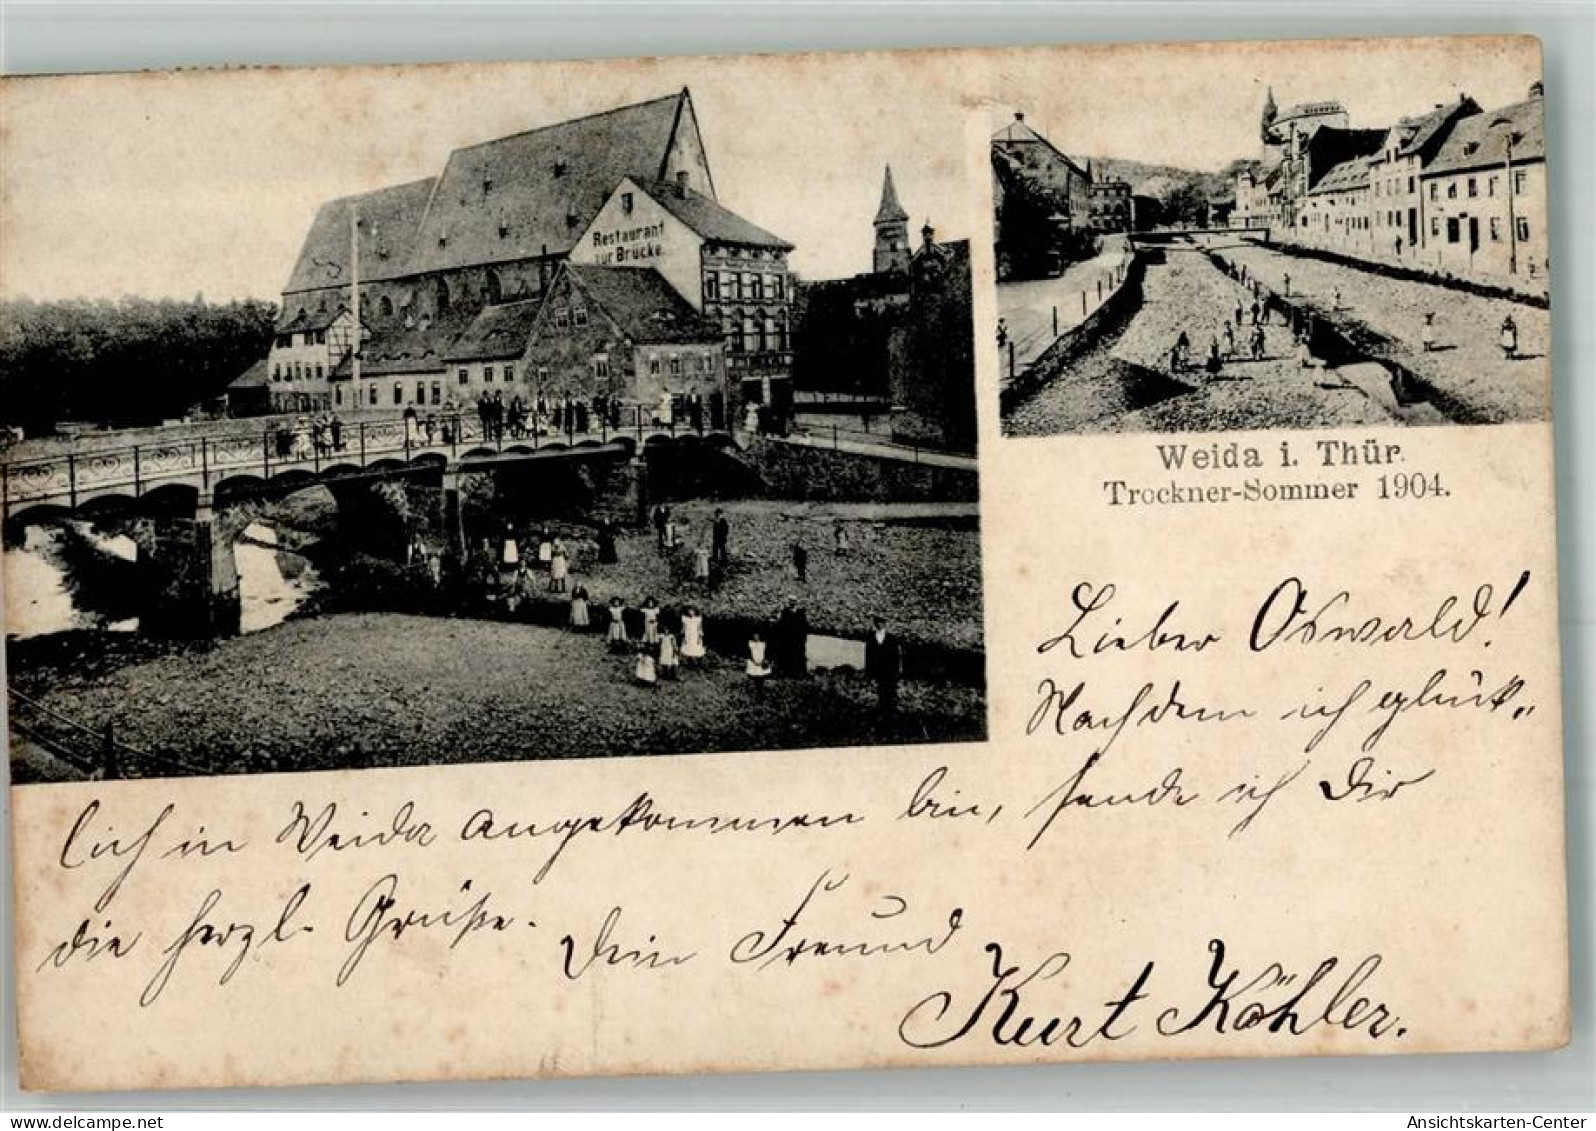 Restaurant
zur Brücke.
Weida i. Thür.
Trockner-Sommer 1904.
Lieber Oswald!
Nachdem ich glück„
lich in Weida angekommen bin, sende ich Dir
die herzl. Grüße.
Dein Freund
Kurt Köhler.
delcampe.net
Ansichtskarten-Center